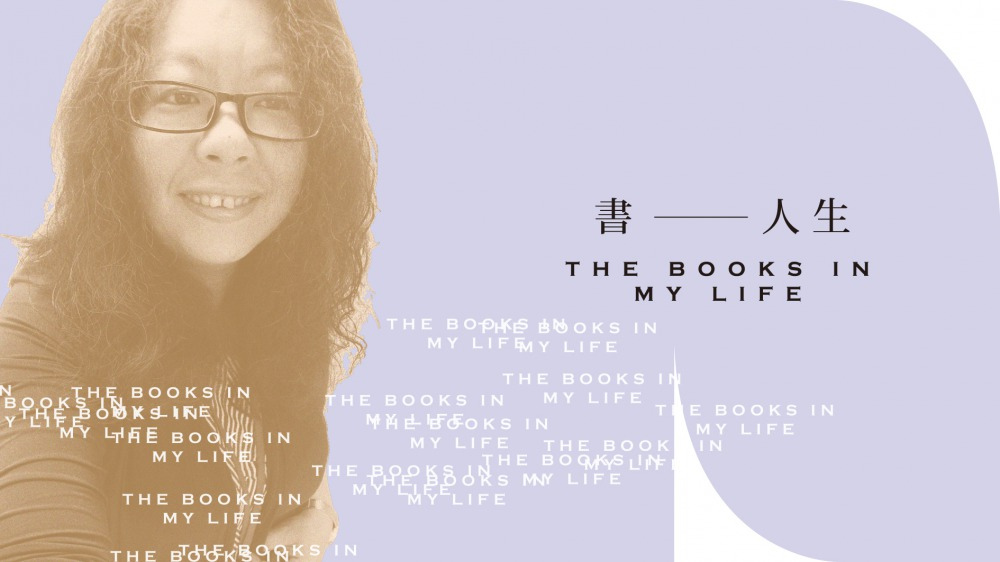 書 — 人生
THE BOOKS IN
MY LIFE
THE BOOKS IN
MY LIFE
THE BOOKS IN
MY LIFE
THE BOOKS IN
MY LIFE
N
THE BOOKS IN
MY LIFE
BOOKS IN
Y LIFE
THE BOOKS IN
MY LIFE
THE BOOKS IN
MY LIFE
THE BOOKS IN
MY LIFE
THE BOOKS IN
MY LIFE
THE BOOKS IN
MY LIFE
THE BOOKS IN
MY LIFE
THE BOOKS IN
MY LIFE
THE BOOKS IN
MY LIFE
THE BOOKS IN
MY LIFE
THE BOOKS IN
MY LIFE
THE BOOKS IN
MY LIFE
THE BOOKS IN
THE BOOKS IN